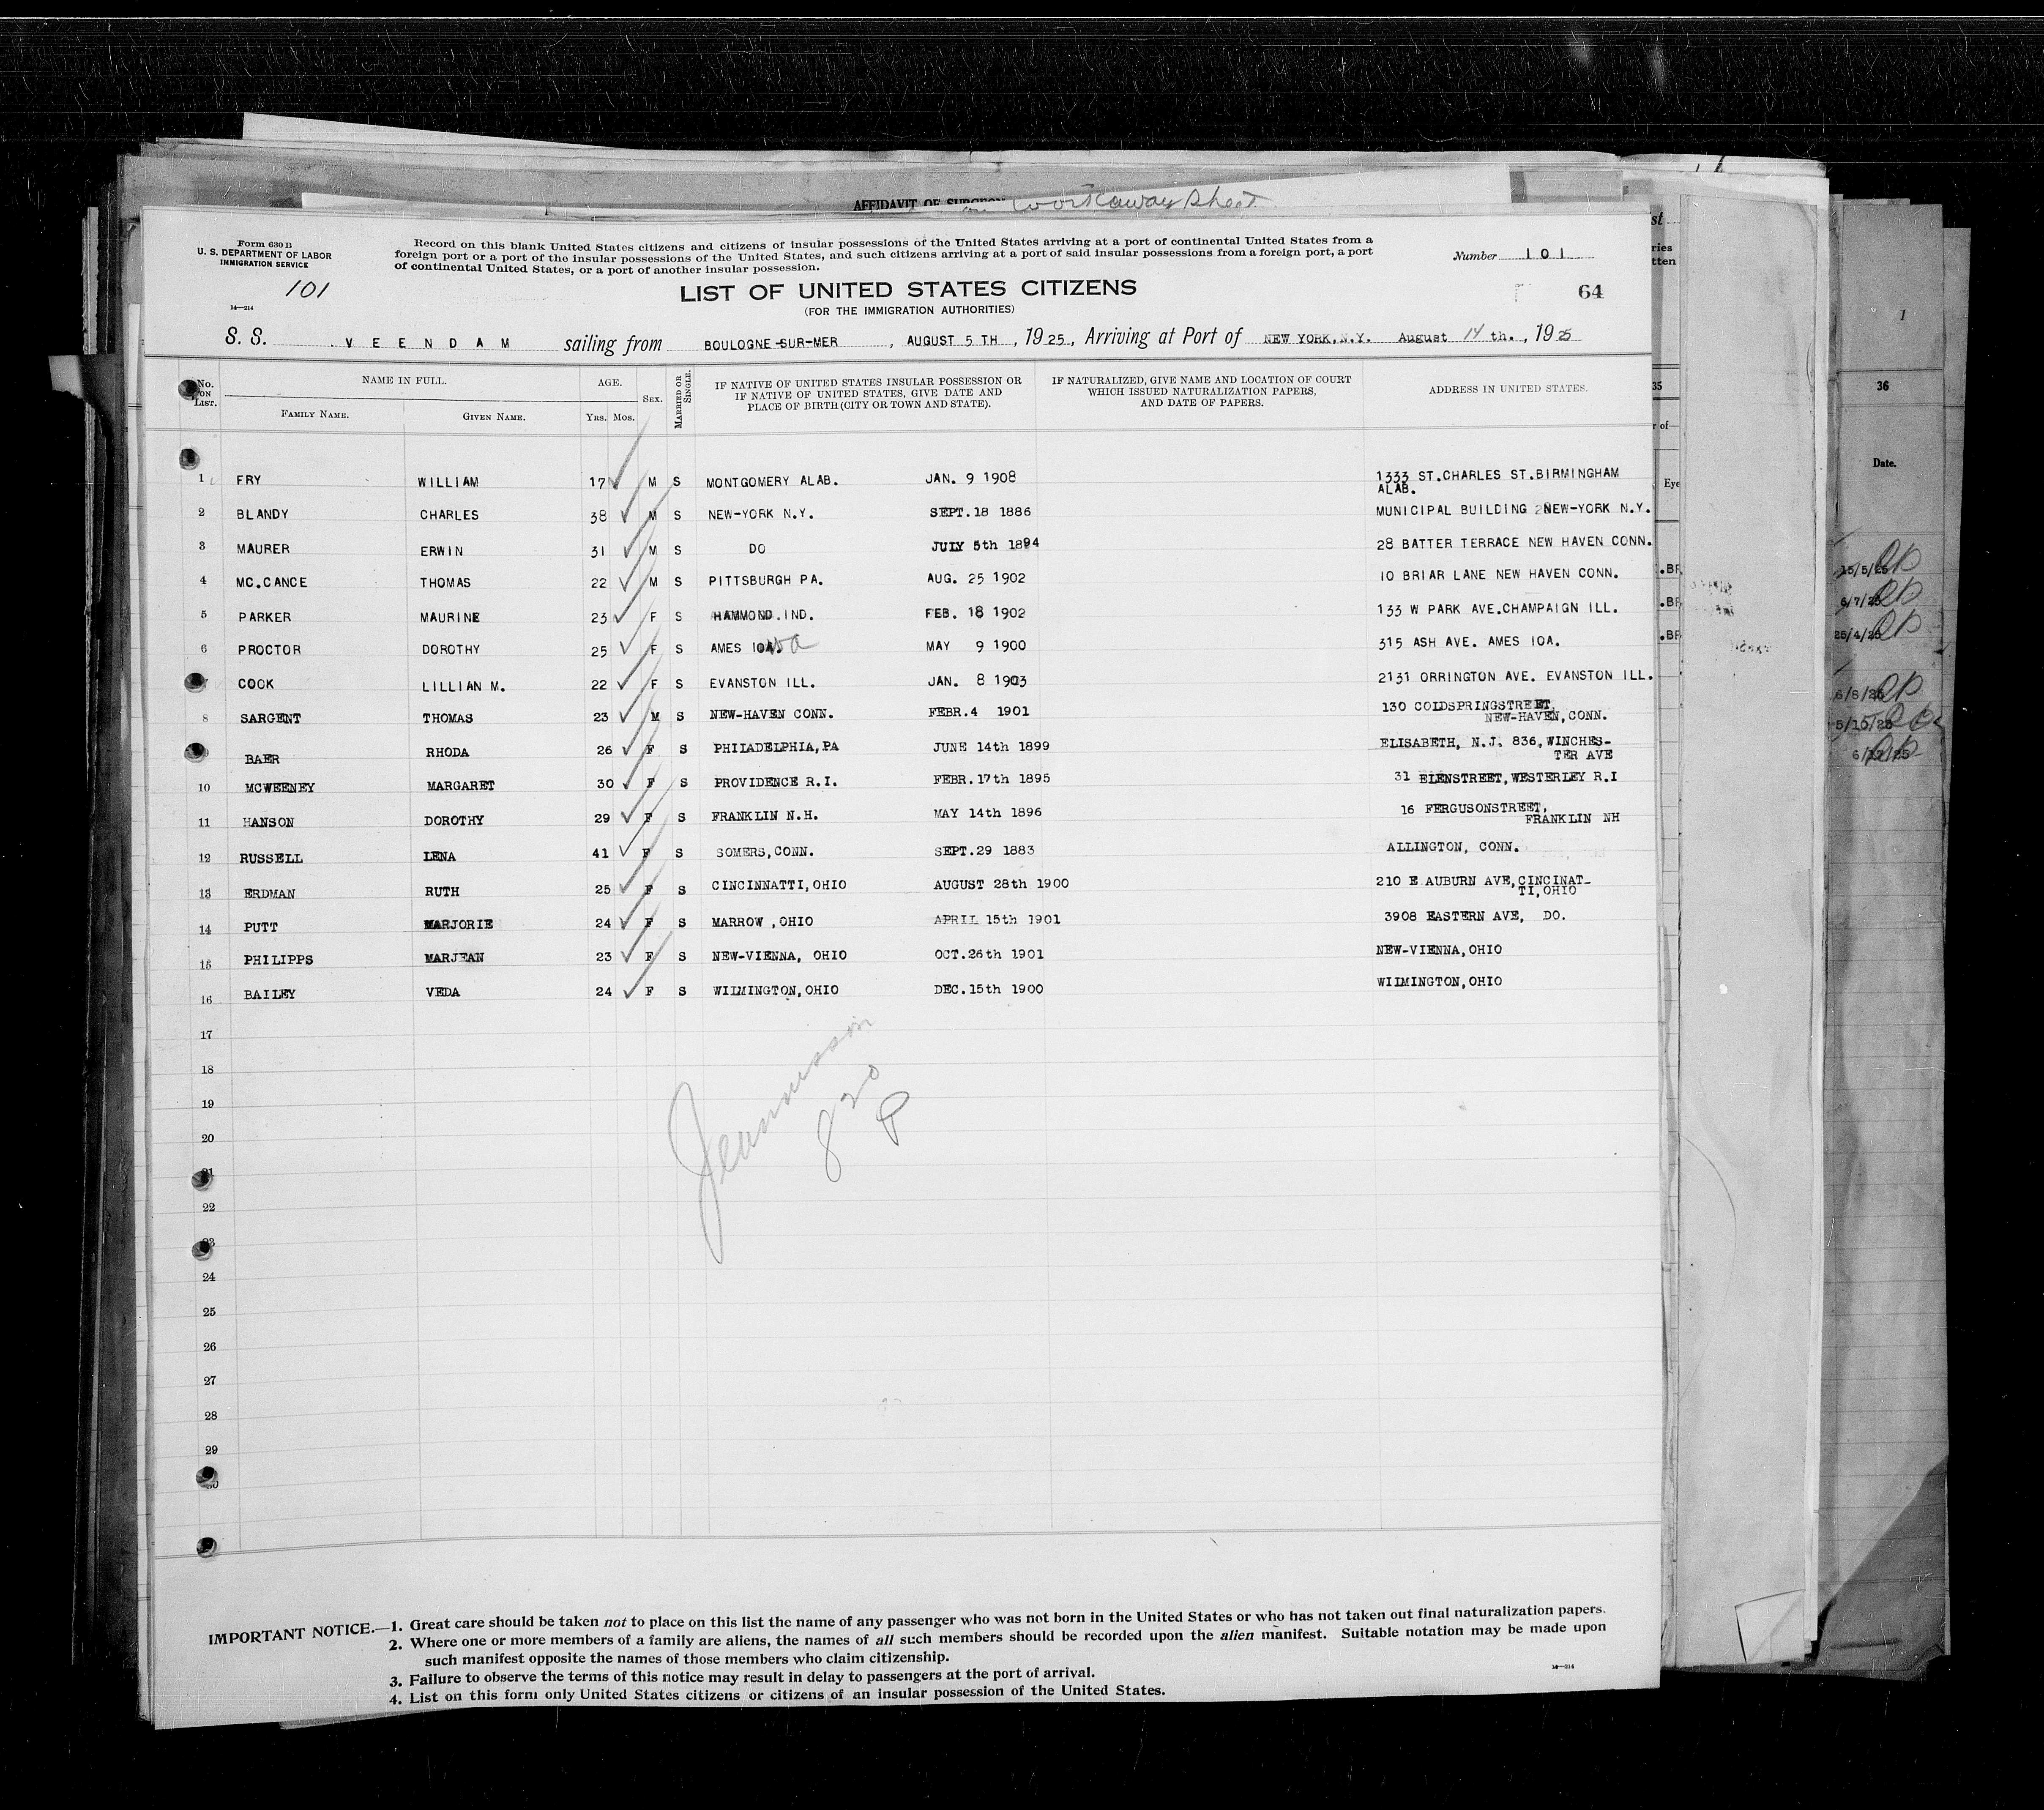 AFFIDAVIT OF SURGEON Workaway Sheet
Form 630 B
U. S. DEPARTMENT OF LABOR
IMMIGRATION SERVICE
101
14—214
Record on this blank United States citizens and citizens of insular possessions of the United States arriving at a port of continental United States from a
foreign port or a port of the insular possessions of the United States, and such citizens arriving at a port of said insular possessions from a foreign port, a port
of continental United States, or a port of another insular possession.
Number 101
LIST OF UNITED STATES CITIZENS
64
(FOR THE IMMIGRATION AUTHORITIES)
S. S. VEENDAM sailing from BOULOGNE-SUR-MER, AUGUST 5 TH, 1925, Arriving at Port of NEW YORK, N.Y. August 14 th., 1925
No. ON LIST. NAME IN FULL. FAMILY NAME. GIVEN NAME. AGE. YRS. MOS. SEX. MARRIED OR SINGLE. IF NATIVE OF UNITED STATES INSULAR POSSESSION OR IF NATIVE OF UNITED STATES, GIVE DATE AND PLACE OF BIRTH (CITY OR TOWN AND STATE). IF NATURALIZED, GIVE NAME AND LOCATION OF COURT WHICH ISSUED NATURALIZATION PAPERS, AND DATE OF PAPERS. ADDRESS IN UNITED STATES.
1 FRY WILLIAM 17 M S MONTGOMERY ALAB. JAN. 9 1908 1333 ST.CHARLES ST.BIRMINGHAM
ALAB.
2 BLANDY CHARLES 38 M S NEW-YORK N.Y. SEPT.18 1886 MUNICIPAL BUILDING NEW-YORK N.Y.
3 MAURER ERWIN 31 M S DO JULY 5th 1894 28 BATTER TERRACE NEW HAVEN CONN.
4 MC.CANCE THOMAS 22 M S PITTSBURGH PA. AUG. 25 1902 10 BRIAR LANE NEW HAVEN CONN.
5 PARKER MAURINE 23 F S HAMMOND.IND. FEB. 18 1902 133 W PARK AVE.CHAMPAIGN ILL.
6 PROCTOR DOROTHY 25 F S AMES IOWA MAY 9 1900 315 ASH AVE. AMES IOA.
COOK LILLIAN M. 22 F S EVANSTON ILL. JAN. 8 1903 2131 ORRINGTON AVE. EVANSTON ILL.
8 SARGENT THOMAS 23 M S NEW-HAVEN CONN. FEBR.4 1901 130 COLDSPRINGSTREET,
NEW-HAVEN, CONN.
BAER RHODA 26 F S PHILADELPHIA,PA JUNE 14th 1899 ELISABETH, N.J. 836, WINCHES-
TER AVE
10 MCWEENEY MARGARET 30 F S PROVIDENCE R.I. FEBR.17th 1895 31 ELENSTREET,WESTERLEY R.I
11 HANSON DOROTHY 29 F S FRANKLIN N.H. MAY 14th 1896 16 FERGUSONSTREET,
FRANKLIN NH
12 RUSSELL LENA 41 F S SOMERS,CONN. SEPT.29 1883 ALLINGTON, CONN.
13 ERDMAN RUTH 25 F S CINCINNATTI,OHIO AUGUST 28th 1900 210 E AUBURN AVE,CINCINAT-
TI,OHIO
14 PUTT MARJORIE 24 F S MARROW ,OHIO APRIL 15th 1901 3908 EASTERN AVE, DO.
15 PHILIPPS MARJEAN 23 F S NEW-VIENNA, OHIO OCT.26th 1901 NEW-VIENNA,OHIO
16 BAILEY VEDA 24 F S WILMINGTON,OHIO DEC.15th 1900 WILMINGTON,OHIO
17
18
19
20
22
24
25
26
27
28
29
820
P
IMPORTANT NOTICE.—1. Great care should be taken not to place on this list the name of any passenger who was not born in the United States or who has not taken out final naturalization papers.
2. Where one or more members of a family are aliens, the names of all such members should be recorded upon the alien manifest. Suitable notation may be made upon
such manifest opposite the names of those members who claim citizenship.
3. Failure to observe the terms of this notice may result in delay to passengers at the port of arrival.
4. List on this form only United States citizens or citizens of an insular possession of the United States.
14—214
35
Eye
1
36
Date.
15/5/25
6/7/25
25/4/25